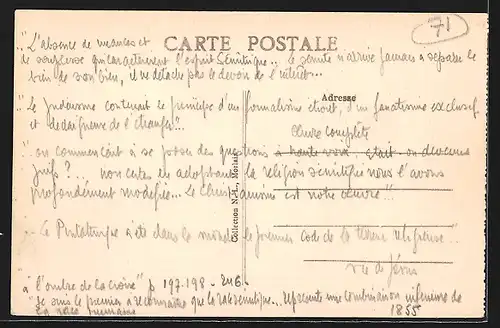 71
"L'absence de nuances et
de souplesse qui caractérisent l'esprit Sémitique... le sémite n'arrive jamais à séparer le
bien de son bien, il ne détache pas le devoir de l'intérêt...
CARTE POSTALE
Adresse
"Le Judaïsme contenait le principe d'un formalisme étroit, d'un fanatisme exclusif
et dédaigneux de l'étranger"...
Œuvre complète
"on commençait à se poser des questions à haute voix
juifs?... non certes en adoptant la religion sémitique nous l'avons
profondément modifiée... Le Christianisme est notre œuvre"!
Le Pentateuque a été dans le monde le premier code de la terreur religieuse"
vie de Jésus
"à l'ombre de la croix" p 197.198 - 246.
"Je suis le premier à reconnaître que la race sémitique... représente une combinaison inférieure de
la race humaine
1855
Collection N.-L., Morlaix